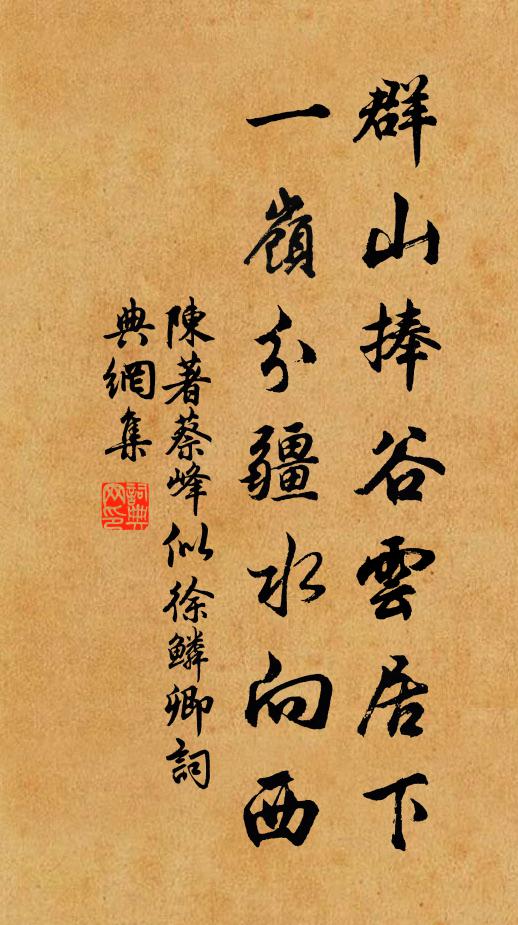 群山捧谷雲居下
一嶺分疆水向西
陳著蔡峰似徐鱗卿詞
典網集
詞典
网印